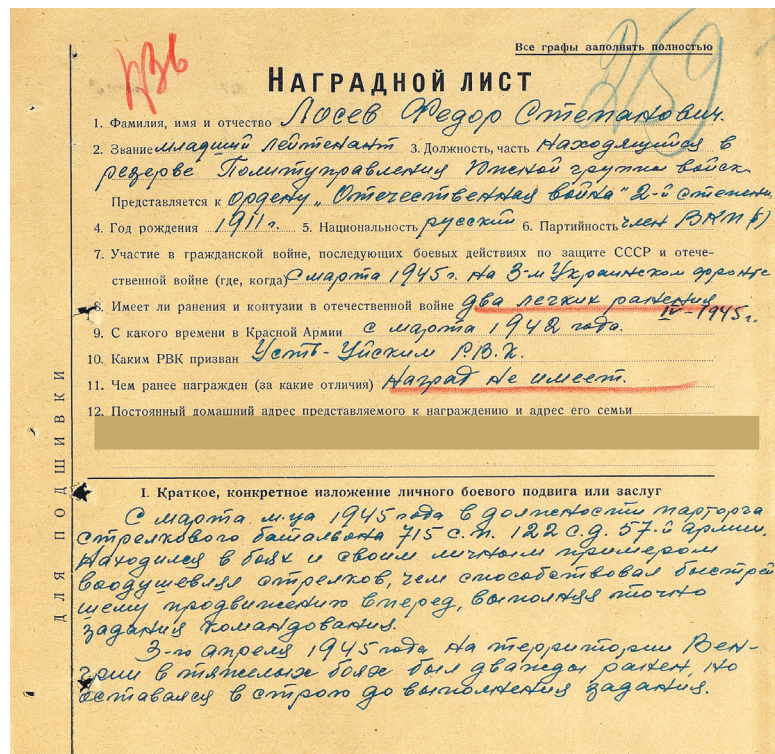 КЗв
259
Все графы заполнять полностью
НАГРАДНОЙ ЛИСТ
1. Фамилия, имя и отчество Лосев Федор Степанович.
2. Звание младший лейтенант 3. Должность, часть Находящийся в
резерве Политуправления Южной группы войск
Представляется к ордену „Отечественная война" 2-й степени.
4. Год рождения 1911 г. 5. Национальность русский 6. Партийность член ВКП(б)
7. Участие в гражданской войне, последующих боевых действиях по защите СССР и отече-
ственной войне (где, когда) С марта 1945 г. на 3-м Украинском фронте
8. Имеет ли ранения и контузии в отечественной войне два легких ранения
IV-1945 г.
9. С какого времени в Красной Армии с марта 1942 года.
10. Каким РВК призван Усть-Уйским Р.В.К.
11. Чем ранее награжден (за какие отличия) Наград не имеет.
12. Постоянный домашний адрес представляемого к награждению и адрес его семьи
I. Краткое, конкретное изложение личного боевого подвига или заслуг
С марта м-ца 1945 года в должности парторга
стрелкового батальона 715 с.п. 122 с.д. 57-й армии.
Находился в боях и своим личным примером
воодушевлял стрелков, чем способствовал быстрей
шему продвижению вперед, выполняя точно
задания командования.
3-го апреля 1945 года на территории Вен-
грии в тяжелых боях был дважды ранен, но
оставался в строю до выполнения задания.
ДЛЯ ПОДШИВКИ